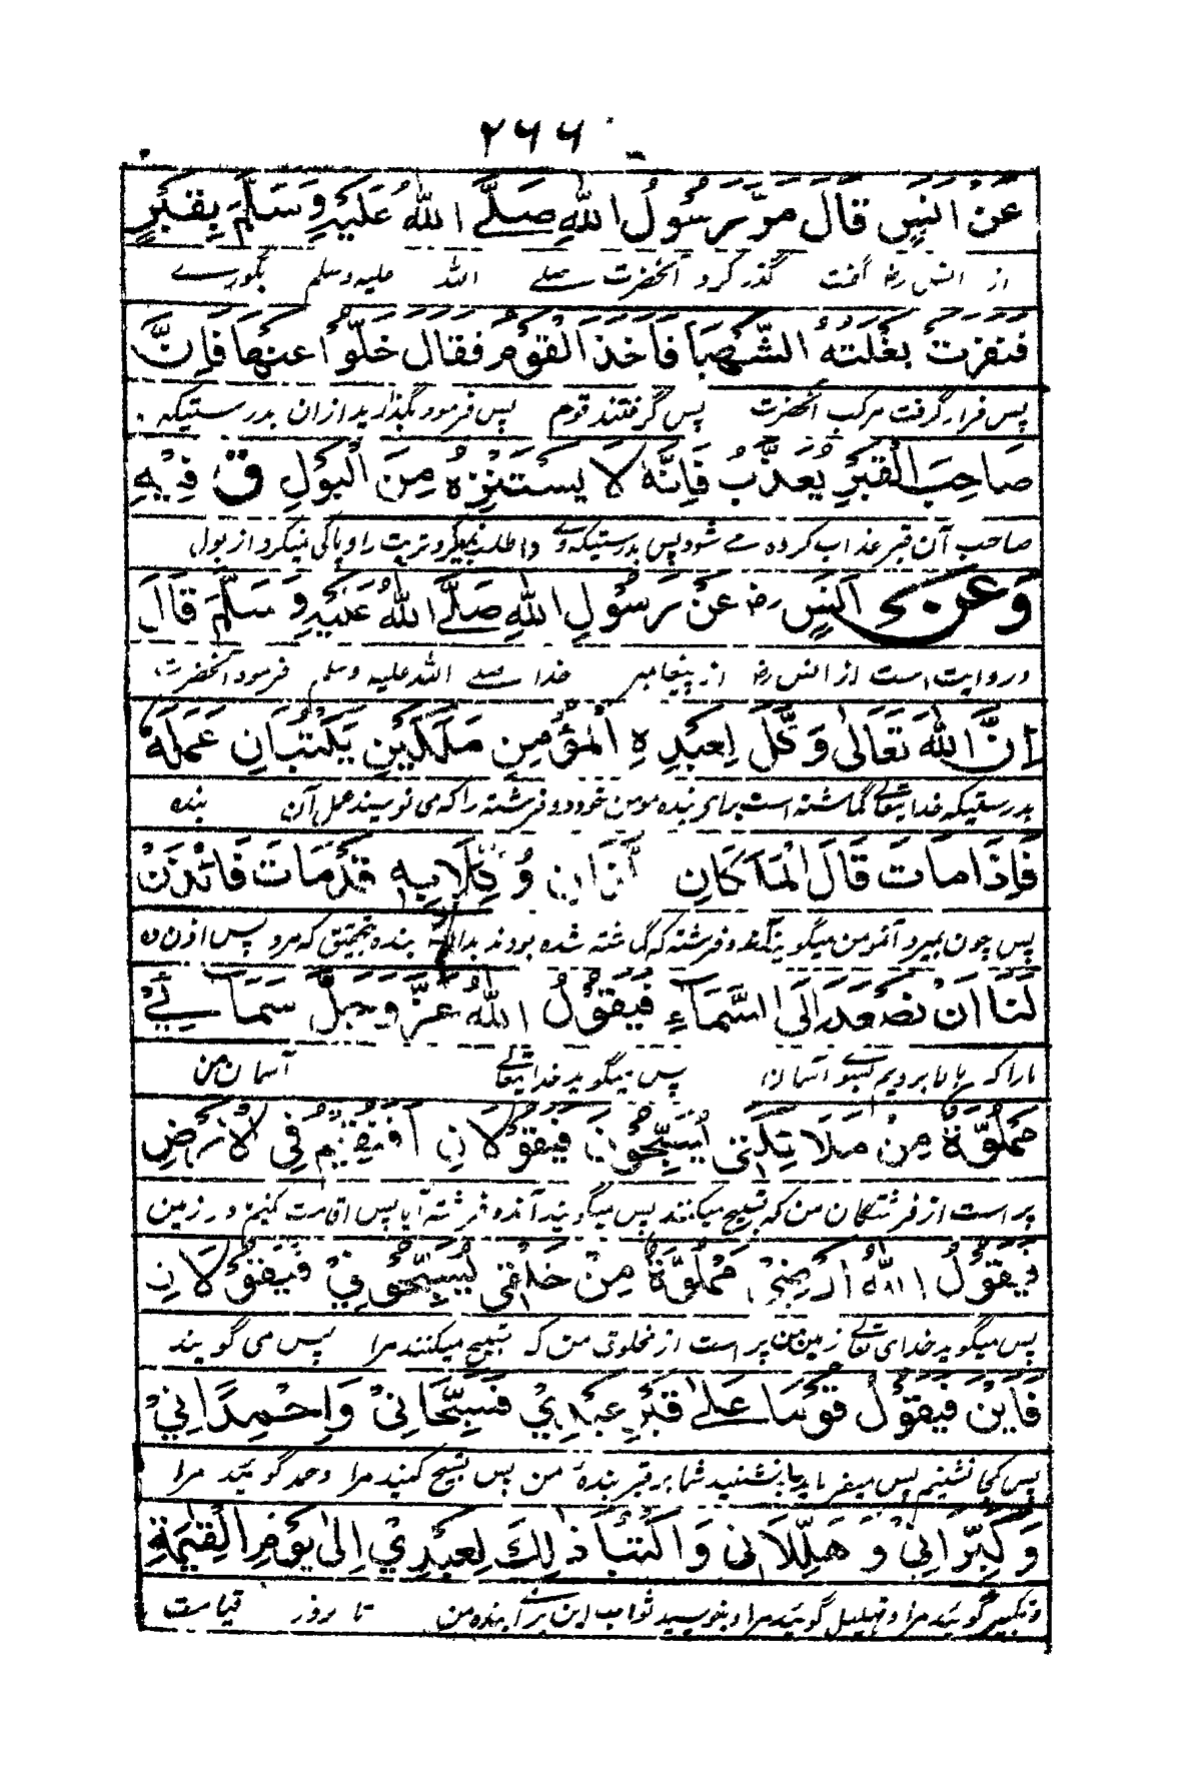 ۲۶۶
عَنْ اَنَسٍ قَالَ مَرَّ رَسُوْلُ اللهِ صَلَّے اللهُ عَلَيْهِ وَسَلَّمَ بِقَبْرٍ
از انس رض گفت گذر کرد آنحضرت صلے اللہ علیہ وسلم بگورے
فنفرت بغلته الشّهبا فاخذ القوم فقال خلّوا عنها فانّ
پس فرار گرفت مرکب آنحضرت پس گرفتند قوم پس فرمود بگذارید ازان بدرستیکہ
صَاحِبَ الْقَبْرِ يُعَذَّبُ فَاِنَّهٗ لَا يَسْتَنْزِهُ مِنَ الْبَوْلِ ق فِيْهِ
صاحب آن قبر عذاب کردہ مے شود پس بدرستیکہ وے نمیکرد از بول
وَعَنْ اَنَسٍ رض عَنْ رَسُوْلِ اللهِ صَلَّے اللهُ عَلَيْهِ وَسَلَّمَ قَالَ
و روایت است از انس رض از پیغامبر خدا صلے اللہ علیہ وسلم فرمود آنحضرت
اِنَّ اللهَ تَعَالٰى وَكَّلَ لِعَبْدِهِ الْمُؤْمِنِ مَلَكَيْنِ يَكْتُبَانِ عَمَلَهٗ
بدرستیکہ خدایتعالے گماشتہ است برای بندہ مومن خود دو فرشتہ را کہ می نویسند عمل آن بندہ
فَاِذَا مَاتَ قَالَ الْمَلَكَانِ وُكِّلَا بِهٖ قَدْ مَاتَ فَائْذَنْ
پس چون بمیرد آن مومن میگویند آن دو فرشتہ کہ گماشتہ شدہ بودند بدان بندہ بتحقیق کہ مرد پس اذن دہ
لَنَا اَنْ نَصْعَدَ اِلَى السَّمَآءِ فَيَقُوْلُ اللهُ عَزَّ وَجَلَّ سَمَآئِيْ
مارا کہ بالا برویم بسوے آسمان پس میگوید خدایتعالے آسمان من
مَمْلُوَّةٌ مِنْ مَلَائِكَتِيْ يُسَبِّحُوْنَ فَيَقُوْلَانِ اَفَنُقِيْمُ فِي الْاَرْضِ
پر است از فرشتگان من کہ تسبیح میکنند پس میگویند آندو فرشتہ آیا پس اقامت کنیم در زمین
فَيَقُوْلُ اللهُ اَرْضِيْ مَمْلُوَّةٌ مِنْ خَلْقِيْ يُسَبِّحُوْنِيْ فَيَقُوْلَانِ
پس میگوید خدای تعالے زمین من پر است از مخلوق من کہ تسبیح میکنند مرا پس می گویند
فَاَيْنَ فَيَقُوْلُ قُوْمَا عَلٰى قَبْرِ عَبْدِيْ فَسَبِّحَانِيْ وَاحْمِدَانِيْ
پس کجا نشینم پس میفرماید بنشنید شما بر قبر بندۂ من پس تسبیح کنید مرا وحمد گوئید مرا
وَكَبِّرَانِيْ وَ هَلِّلَانِيْ وَاكْتُبَا ذٰلِكَ لِعَبْدِيْ اِلٰى يَوْمِ الْقِيٰمَةِ
و تکبیر گوئید مرا و تہلیل گوئید مرا و بنویسید ثواب این براے بندہ من تا بروز قیامت